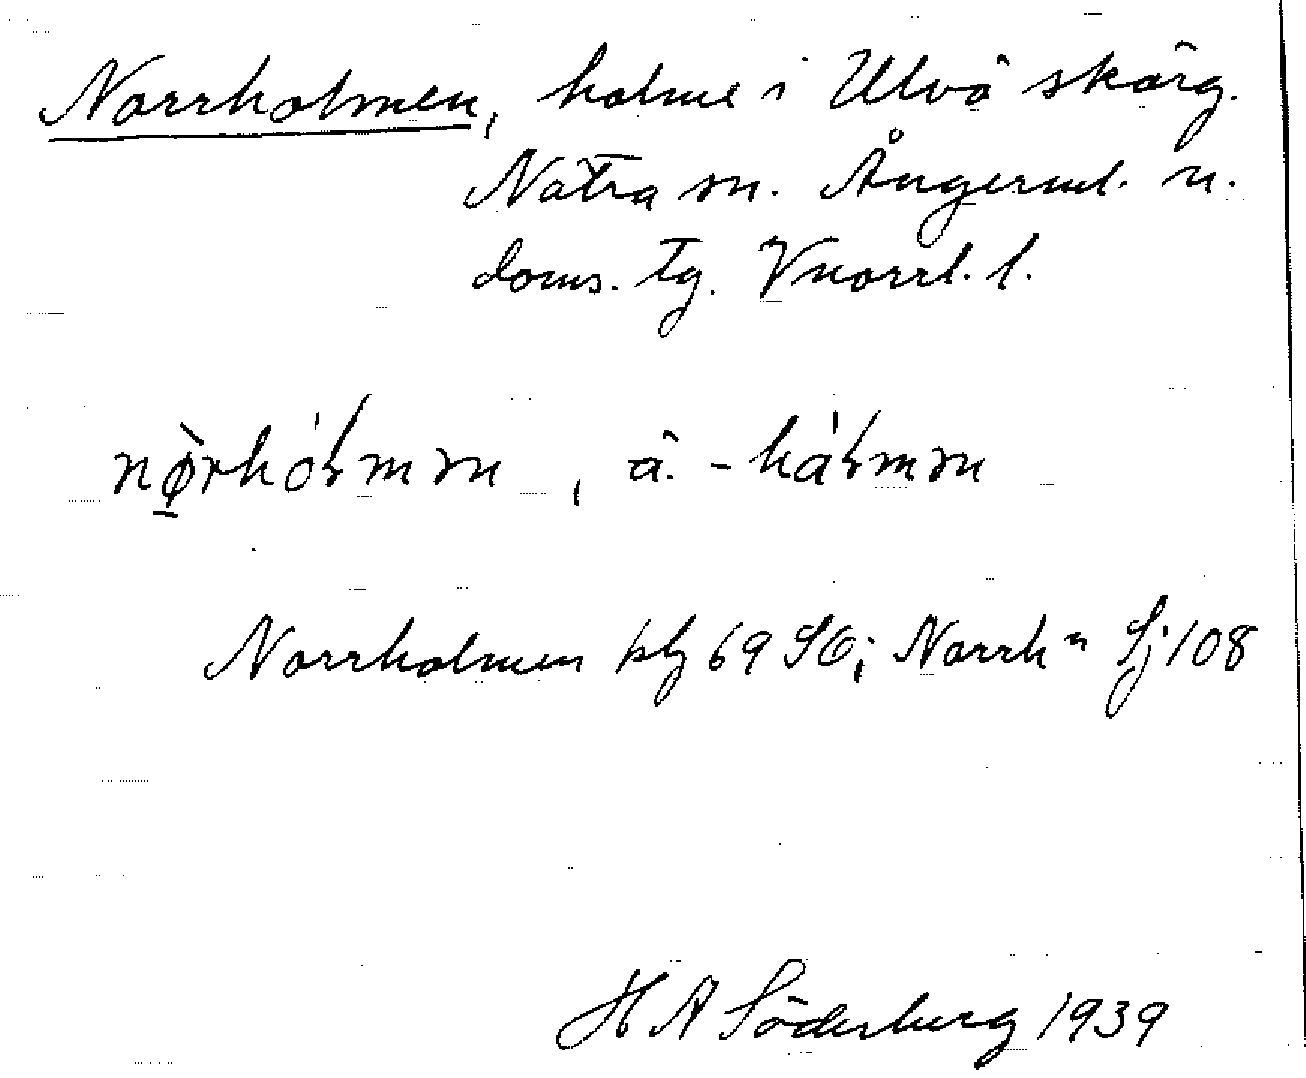 Norrholmen, holme i Ulvö skärg.
Nätra sn. Ångerml. n.
doms. tg. Vnorrl. l.
nø̠̀rhóɫmm̥, ä. -háɫmm̥
Norrholmen kbl 69 SO; Norrhⁿ Sj 108
H A Söderberg 1939